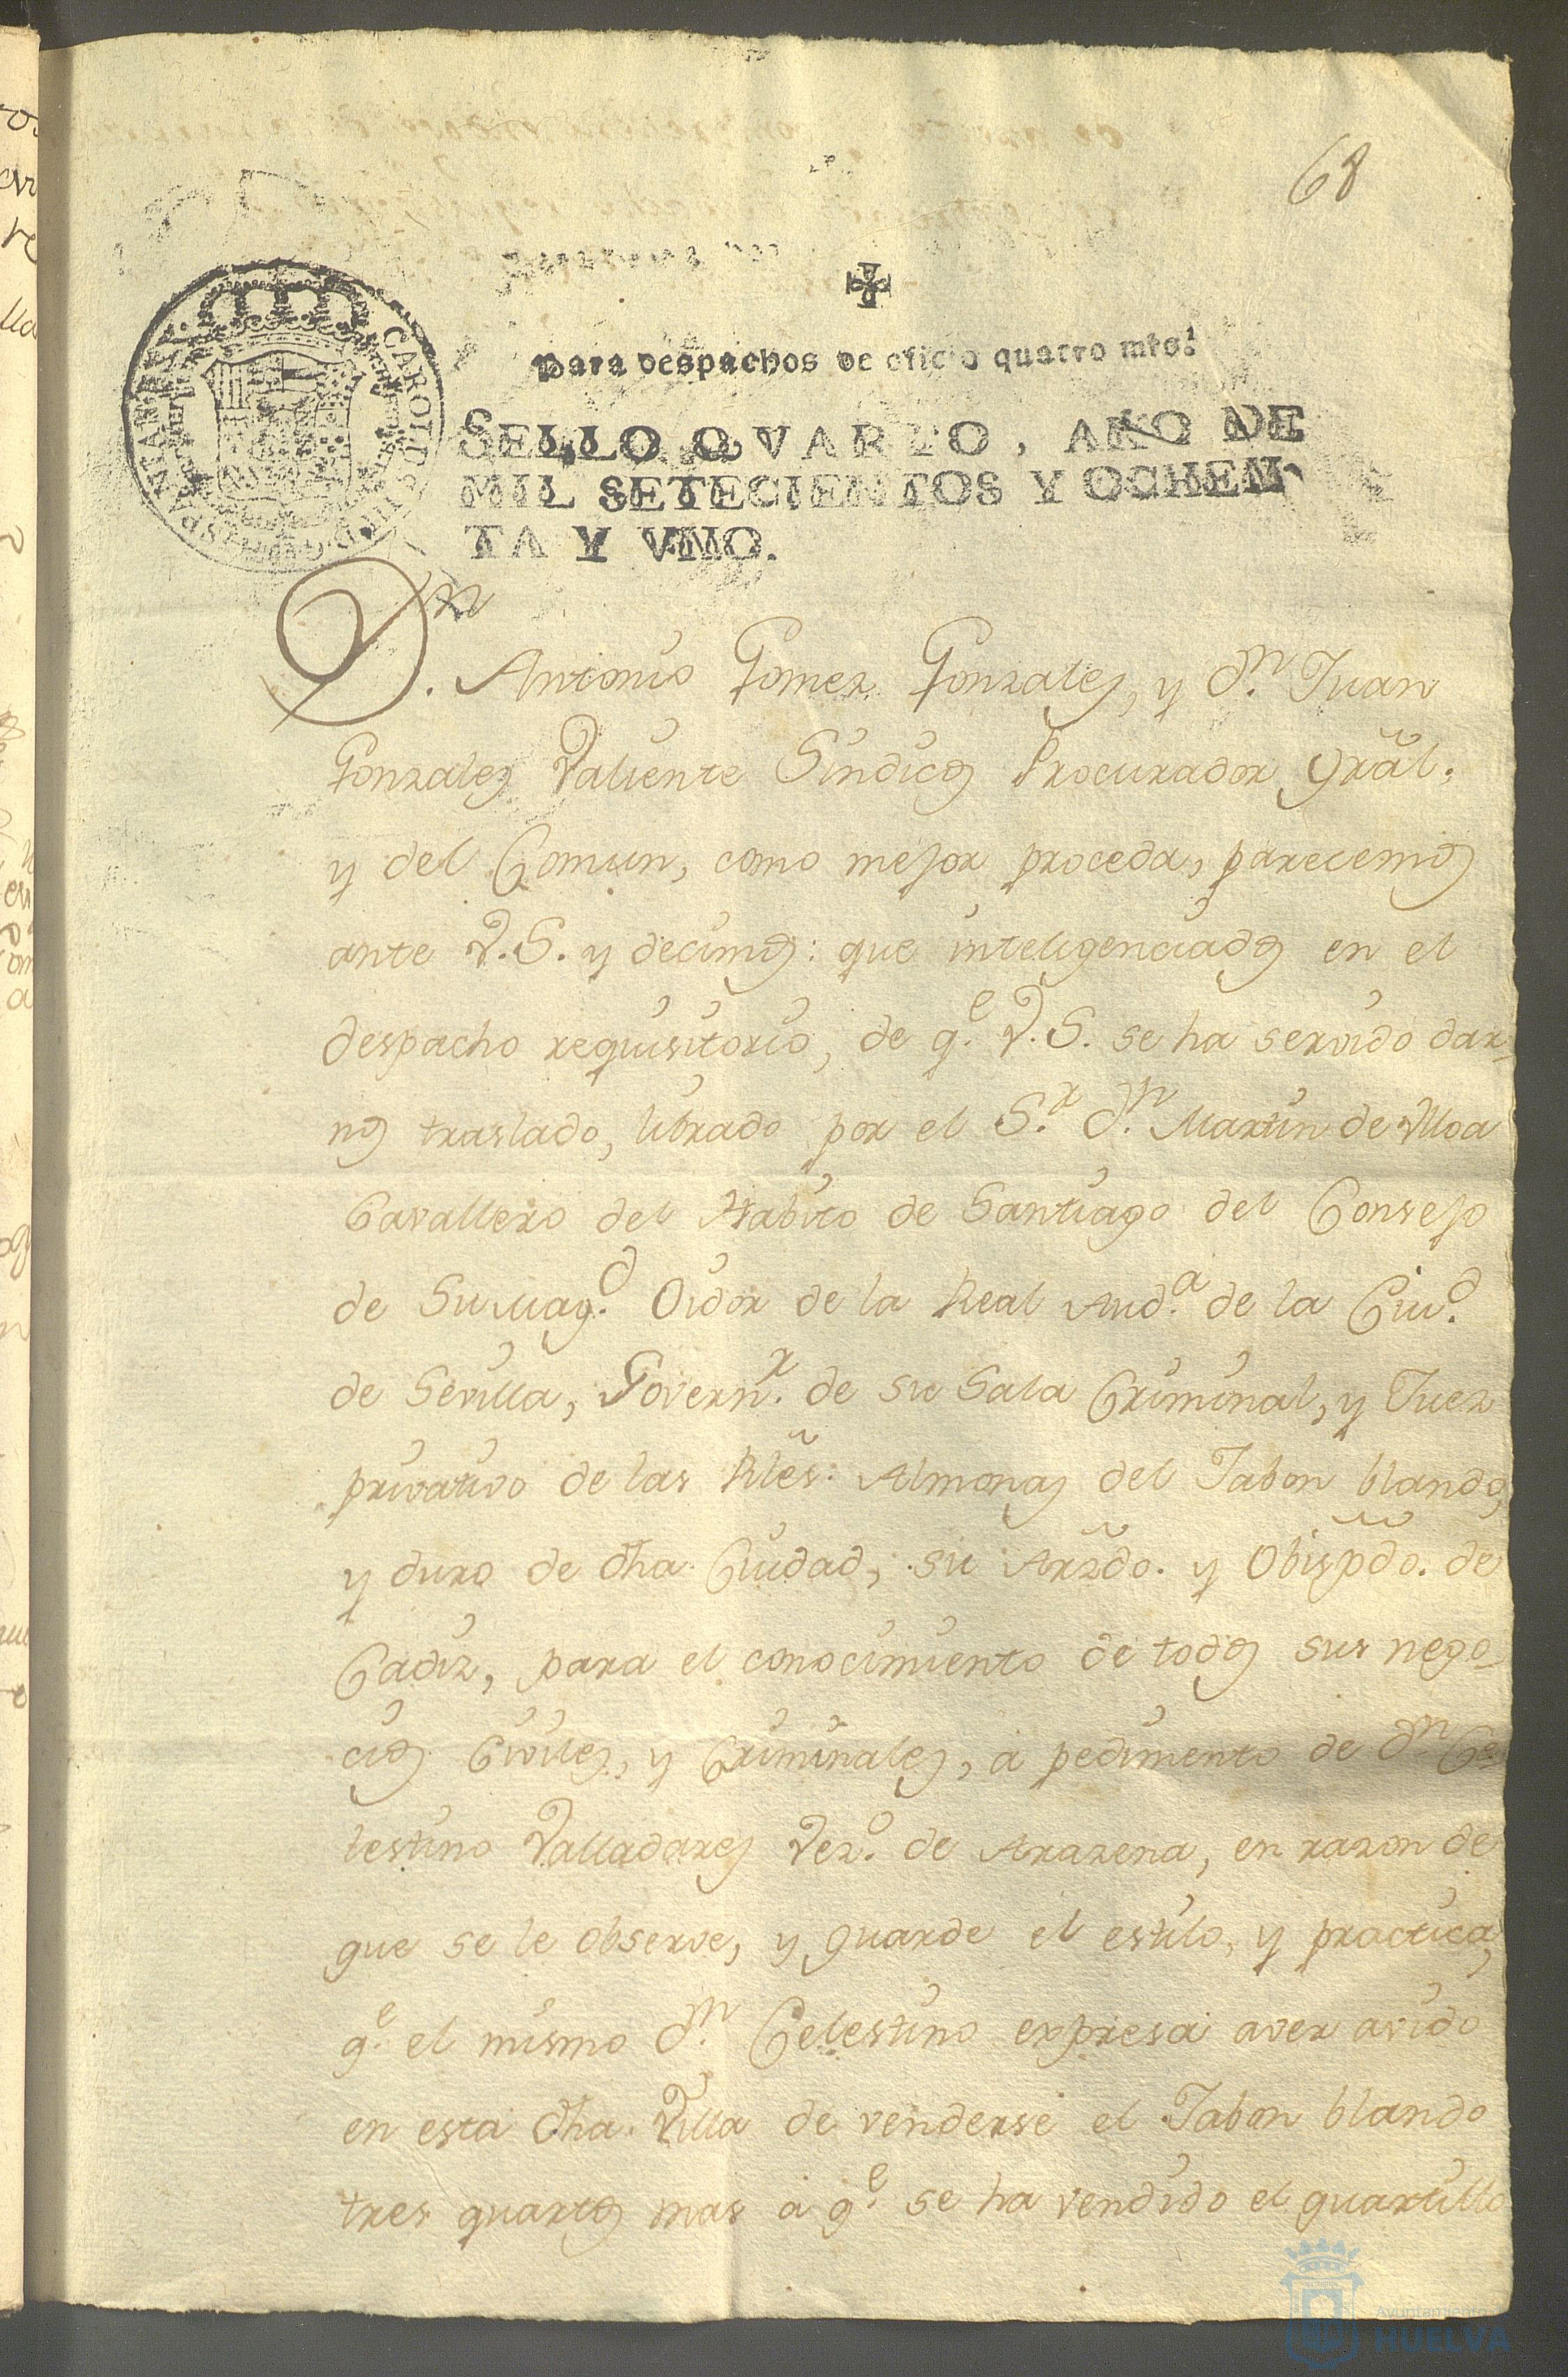 68
Para despachos de oficio quatro mrs.
SELLO QVARTO, AÑO DE
MIL SETECIENTOS Y OCHEN
TA Y VNO.
CAROLUS III D G HISPANIAR
Dn. Antonio Gomez Gonzales, y dn. Juan
Gonzales Valiente Sindicos Procurador grãl.
y del Comun, como mejor proceda, parecemos
ante V.S. y decimos: que inteligenciados en el
despacho requisitorio, de qe. V.S. se ha servido dar-
nos traslado, librado por el Sr. dn. Martin de Ulloa
Cavallero del Habito de Santiago del Consejo
de Su Magd. Oidor de la Real Auda. de la Ciud.
de Sevilla, Governr. de su Sala Criminal, y Juez
privativo de las Rles. Almonas del Jabon blando,
y duro de dha. Ciudad, su Arzdo. y Obispdo. de
Cadiz, para el conocimiento de todos sus nego-
cios Civiles, y Criminales, a pedimento de dn Ce
lestino Valladares Vezo. de Arazena, en razon de
que se le observe, y guarde el estilo, y practica,
qe. el mismo dn. Celestino expresa aver avido
en esta dha. Villa de venderse el Jabon blando
tres quartos mas a qe. se ha vendido el quartillo
Ayuntamiento
HUELVA